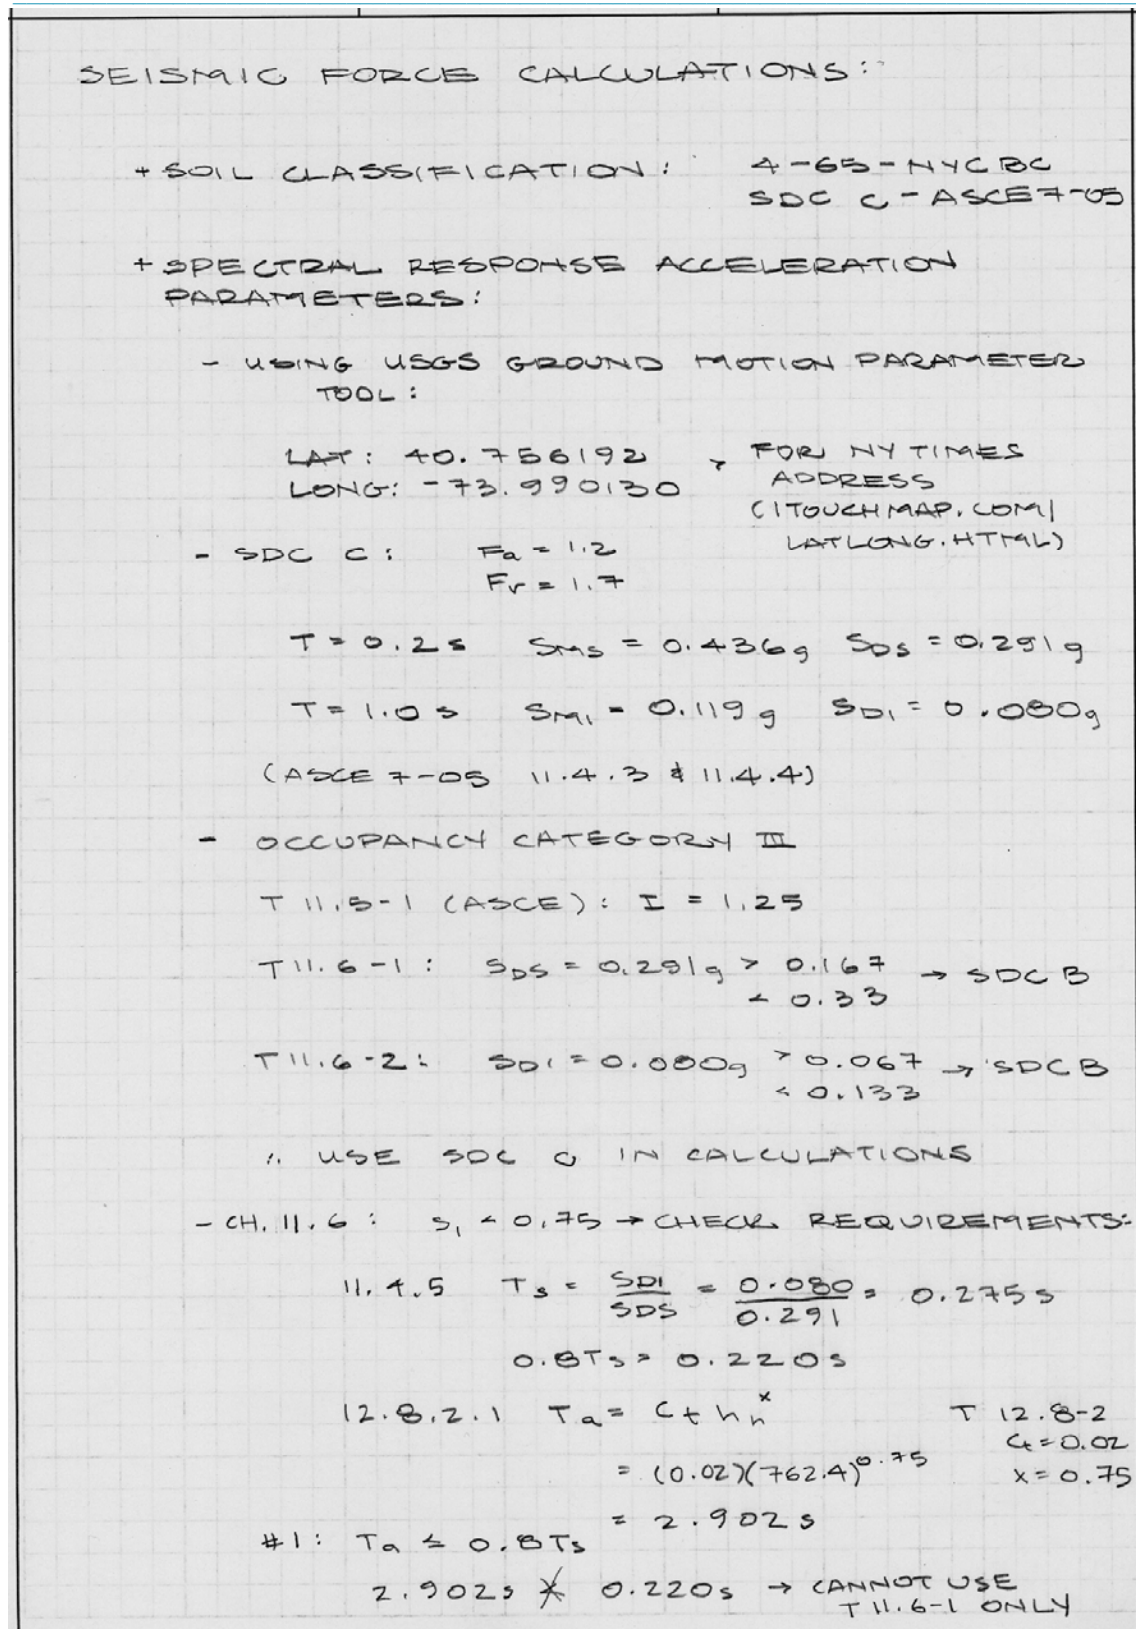 SEISMIC FORCE CALCULATIONS:
+ SOIL CLASSIFICATION: 4-65-NYCBC
SDC C - ASCE 7-05
+ SPECTRAL RESPONSE ACCELERATION
PARAMETERS:
- USING USGS GROUND MOTION PARAMETER
TOOL:
LAT: 40.756192 , FOR NY TIMES
LONG: -73.990130 ADDRESS
(ITOUCHMAP.COM/
LATLONG.HTML)
- SDC C: Fa = 1.2
Fv = 1.7
T = 0.2 s SMS = 0.436g SDS = 0.291g
T = 1.0 s SM1 = 0.119g SD1 = 0.080g
(ASCE 7-05 11.4.3 & 11.4.4)
- OCCUPANCY CATEGORY III
T 11.5-1 (ASCE): I = 1.25
T 11.6-1: SDS = 0.291g > 0.167 → SDC B
< 0.33
T 11.6-2: SD1 = 0.080g > 0.067 → SDC B
< 0.133
∴ USE SDC C IN CALCULATIONS
- CH. 11.6: S1 < 0.75 → CHECK REQUIREMENTS:
11.4.5 Ts = SD1/SDS = 0.080/0.291 = 0.275 s
0.8Ts = 0.220 s
12.8.2.1 Ta = Ct hn^x T 12.8-2
Ct = 0.02
= (0.02)(762.4)^0.75 x = 0.75
= 2.902 s
#1: Ta ≤ 0.8Ts
2.902s ≮ 0.220s → CANNOT USE
T 11.6-1 ONLY